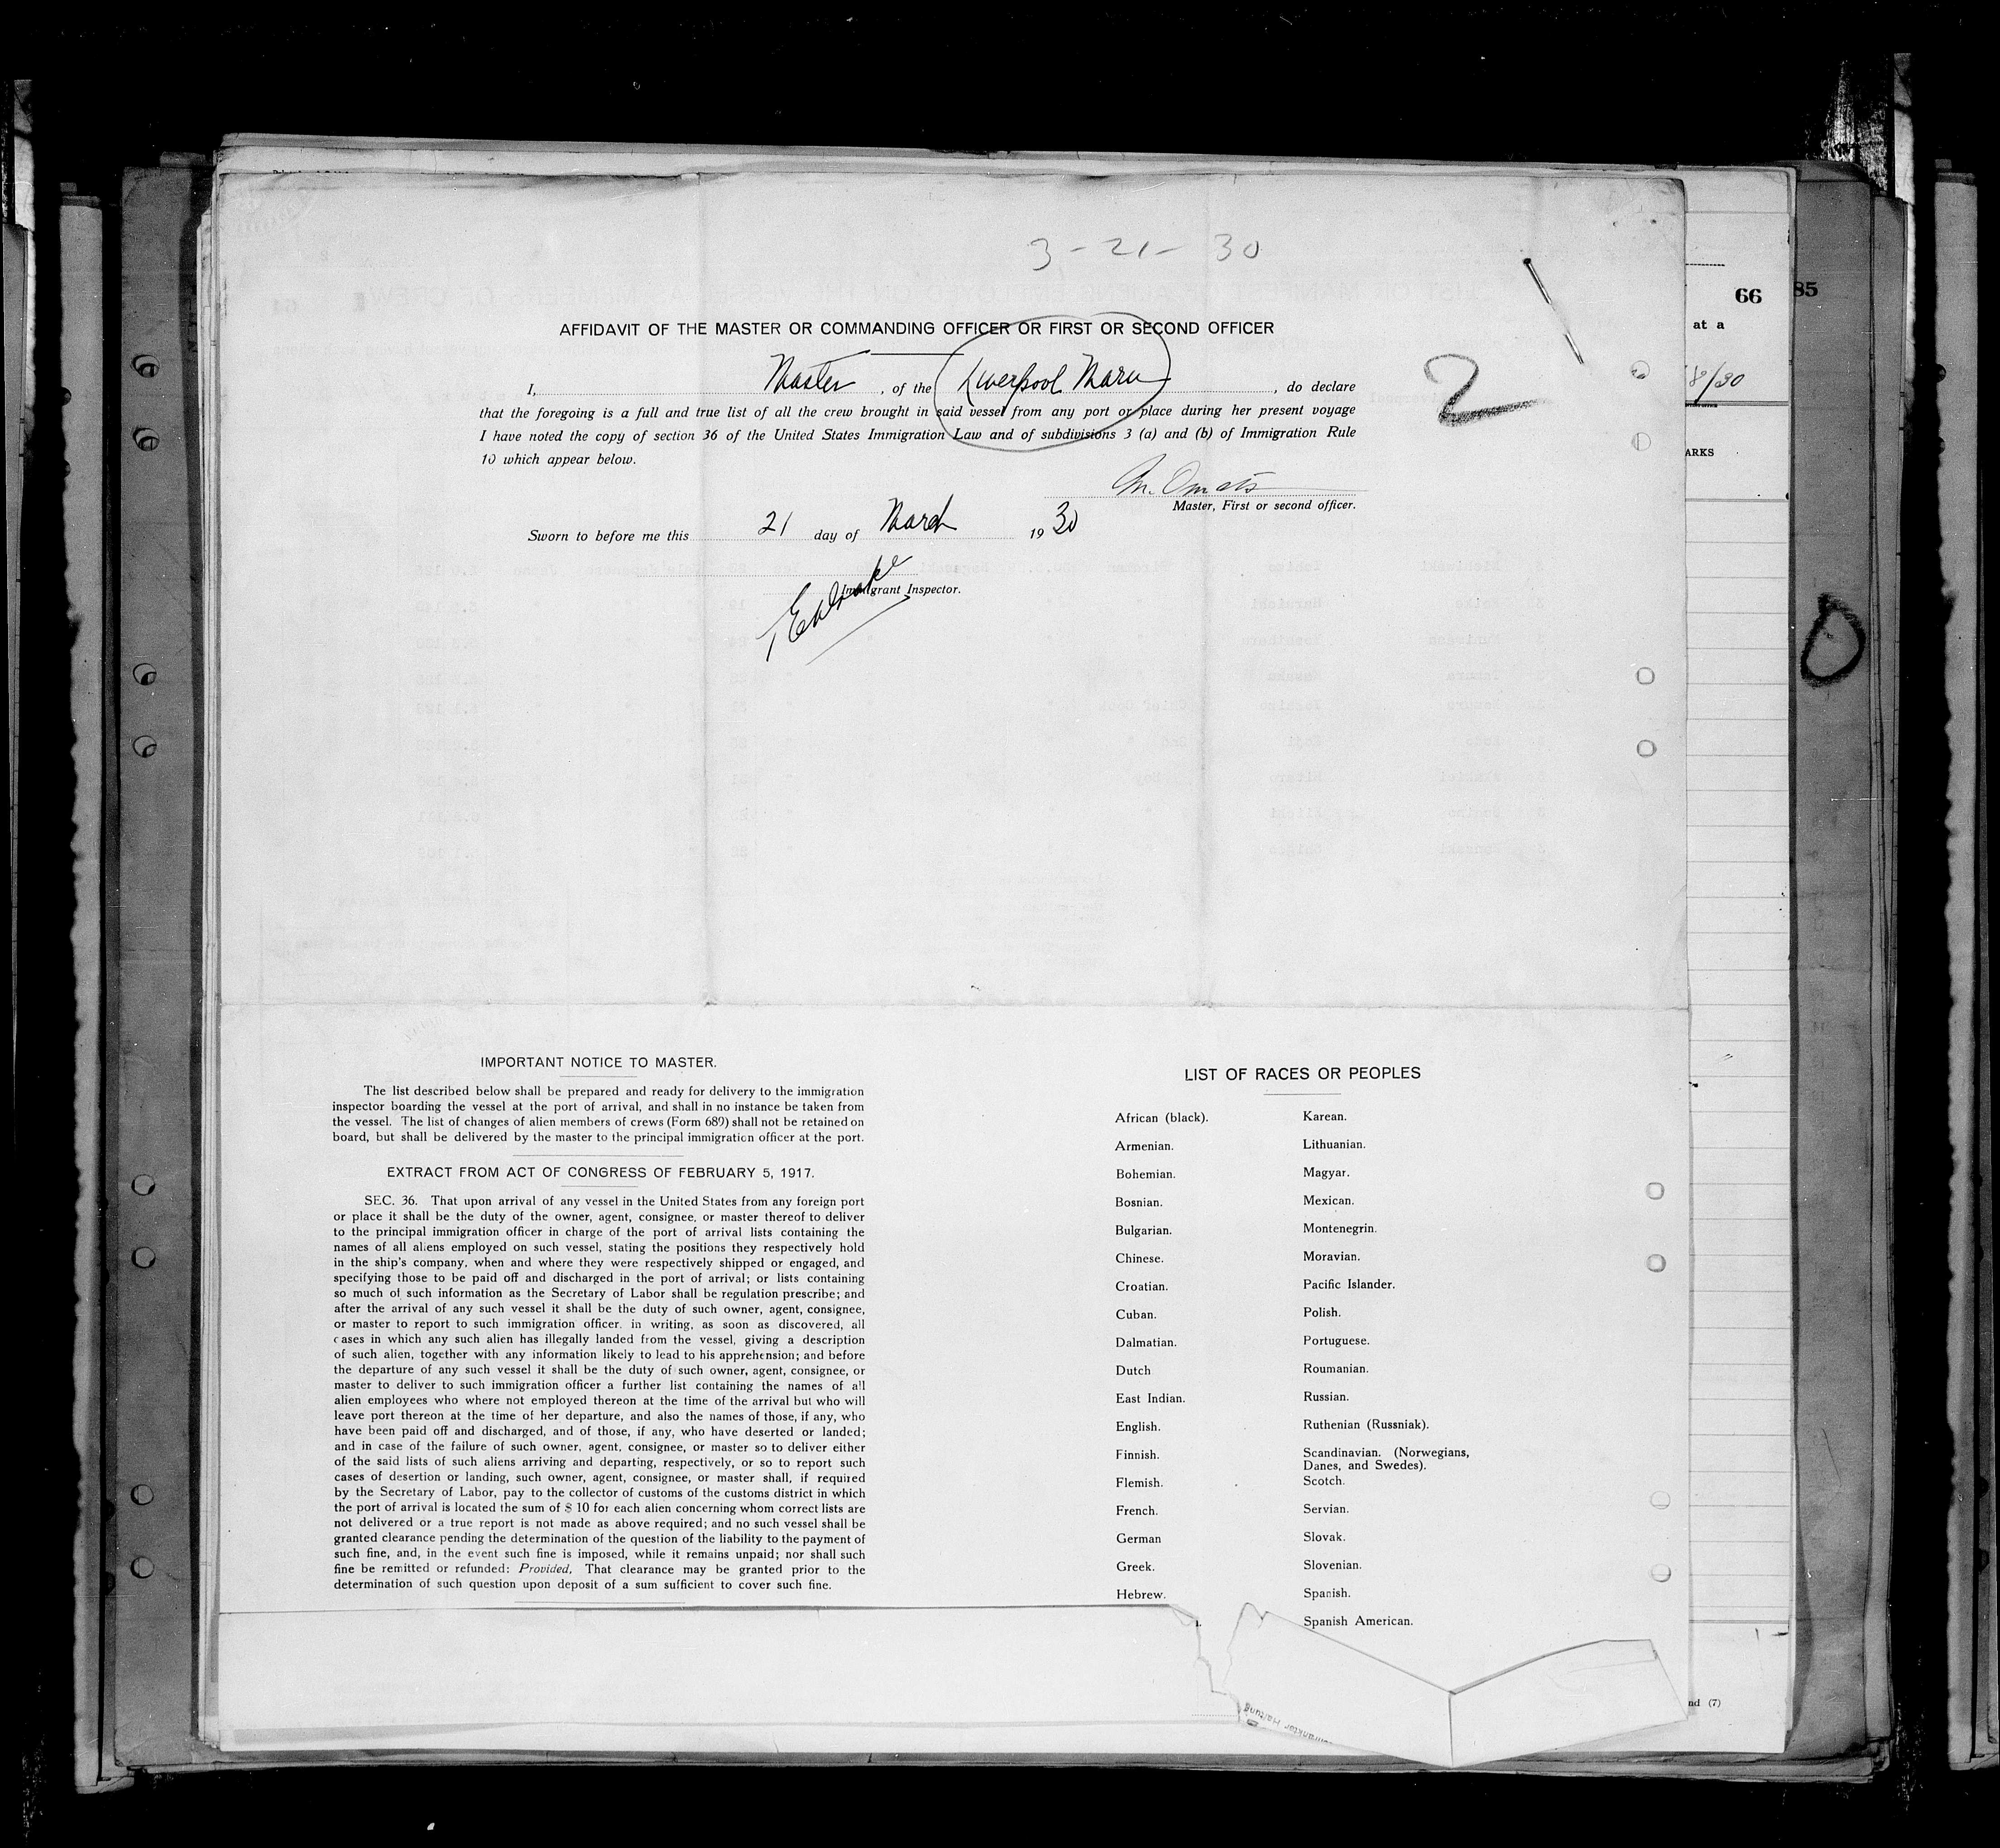 3-21-30
66
85
at a
AFFIDAVIT OF THE MASTER OR COMMANDING OFFICER OR FIRST OR SECOND OFFICER
8/30
I, Master, of the Liverpool Maru, do declare
that the foregoing is a full and true list of all the crew brought in said vessel from any port or place during her present voyage
2
I have noted the copy of section 36 of the United States Immigration Law and of subdivisions 3 (a) and (b) of Immigration Rule
10 which appear below.
ARKS
Master, First or second officer.
Sworn to before me this 21 day of March 1930
Immigrant Inspector.
IMPORTANT NOTICE TO MASTER.
The list described below shall be prepared and ready for delivery to the immigration
inspector boarding the vessel at the port of arrival, and shall in no instance be taken from
the vessel. The list of changes of alien members of crews (Form 689) shall not be retained on
board, but shall be delivered by the master to the principal immigration officer at the port.
EXTRACT FROM ACT OF CONGRESS OF FEBRUARY 5, 1917.
SEC. 36. That upon arrival of any vessel in the United States from any foreign port
or place it shall be the duty of the owner, agent, consignee, or master thereof to deliver
to the principal immigration officer in charge of the port of arrival lists containing the
names of all aliens employed on such vessel, stating the positions they respectively hold
in the ship's company, when and where they were respectively shipped or engaged, and
specifying those to be paid off and discharged in the port of arrival; or lists containing
so much of such information as the Secretary of Labor shall be regulation prescribe; and
after the arrival of any such vessel it shall be the duty of such owner, agent, consignee,
or master to report to such immigration officer, in writing, as soon as discovered, all
cases in which any such alien has illegally landed from the vessel, giving a description
of such alien, together with any information likely to lead to his apprehension; and before
the departure of any such vessel it shall be the duty of such owner, agent, consignee, or
master to deliver to such immigration officer a further list containing the names of all
alien employees who where not employed thereon at the time of the arrival but who will
leave port thereon at the time of her departure, and also the names of those, if any, who
have been paid off and discharged, and of those, if any, who have deserted or landed;
and in case of the failure of such owner, agent, consignee, or master so to deliver either
of the said lists of such aliens arriving and departing, respectively, or so to report such
cases of desertion or landing, such owner, agent, consignee, or master shall, if required
by the Secretary of Labor, pay to the collector of customs of the customs district in which
the port of arrival is located the sum of $ 10 for each alien concerning whom correct lists are
not delivered or a true report is not made as above required; and no such vessel shall be
granted clearance pending the determination of the question of the liability to the payment of
such fine, and, in the event such fine is imposed, while it remains unpaid; nor shall such
fine be remitted or refunded: Provided, That clearance may be granted prior to the
determination of such question upon deposit of a sum sufficient to cover such fine.
LIST OF RACES OR PEOPLES
African (black).
Armenian.
Bohemian.
Bosnian.
Bulgarian.
Chinese.
Croatian.
Cuban.
Dalmatian.
Dutch
East Indian.
English.
Finnish.
Flemish.
French.
German
Greek.
Hebrew.
Karean.
Lithuanian.
Magyar.
Mexican.
Montenegrin.
Moravian.
Pacific Islander.
Polish.
Portuguese.
Roumanian.
Russian.
Ruthenian (Russniak).
Scandinavian. (Norwegians,
Danes, and Swedes).
Scotch.
Servian.
Slovak.
Slovenian.
Spanish.
Spanish American.
nd (7)